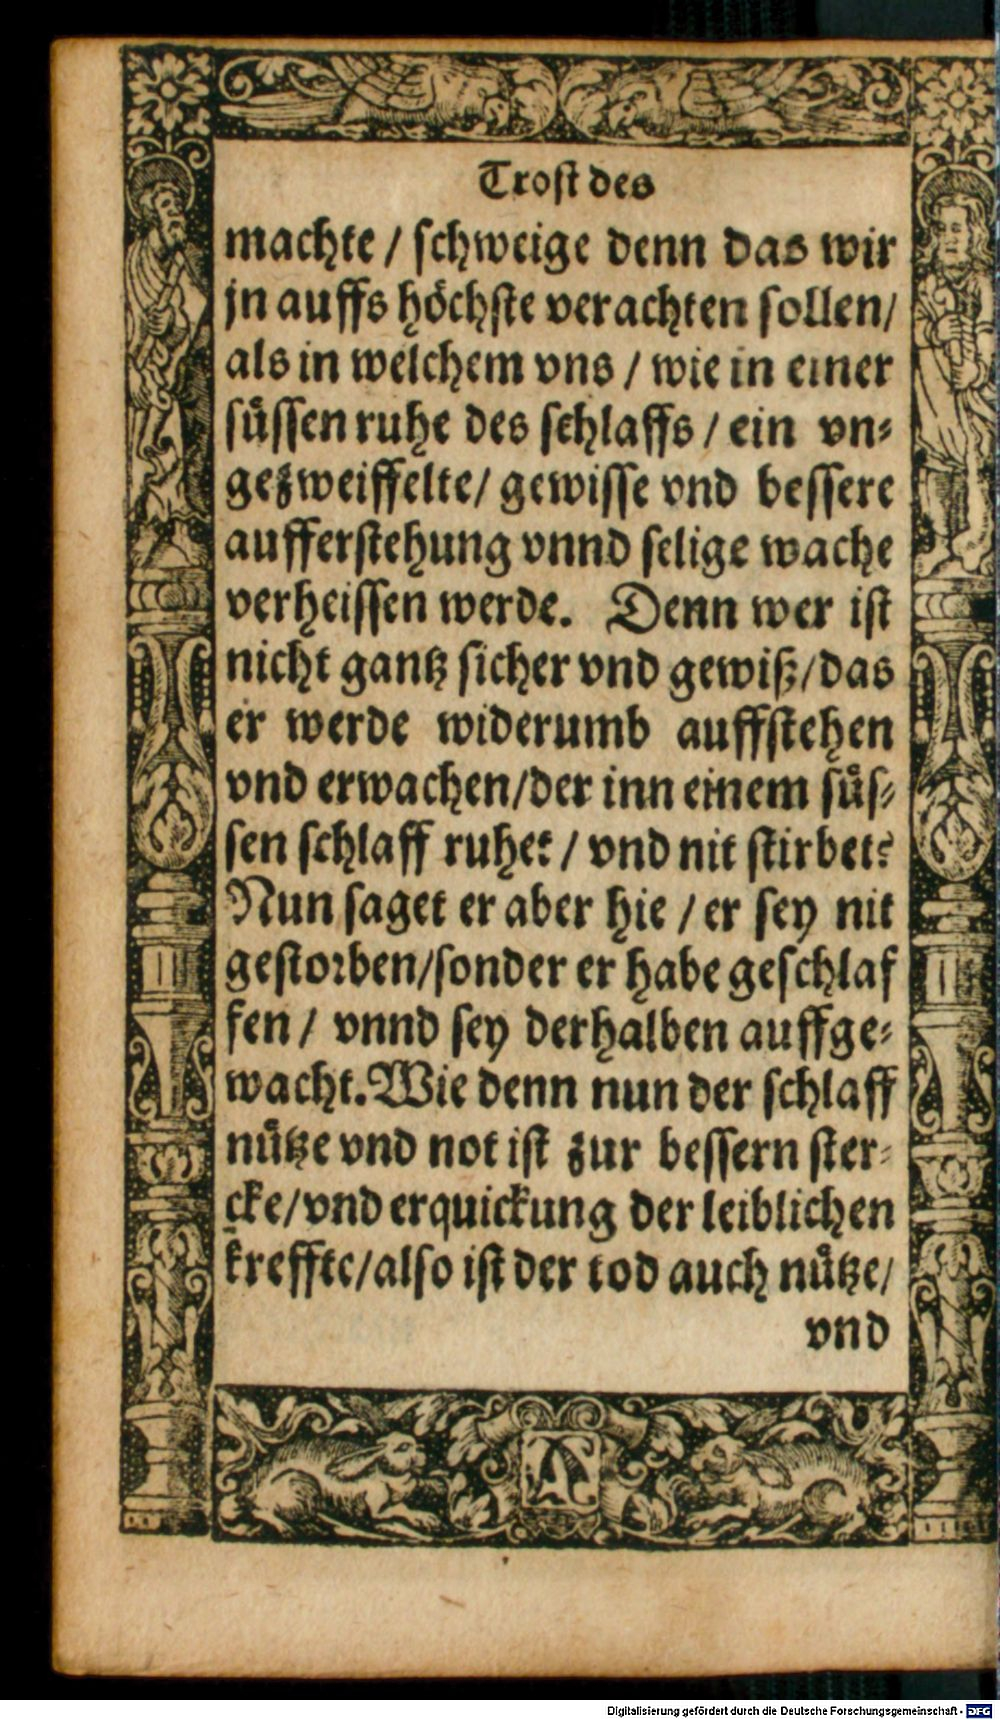 Trost des
machte / schweige denn das wir
jn auffs höchste verachten sollen/
als in welchem vns / wie in einer
süssen ruhe des schlaffs / ein vn⸗
gezweiffelte/ gewisse vnd bessere
aufferstehung vnnd selige wache
verheissen werde. Denn wer ist
nicht gantz sicher vnd gewiß/das
er werde widerumb auffstehen
vnd erwachen/der inn einem süs⸗
sen schlaff ruhet / vnd nit stirbet?
Nun saget er aber hie / er sey nit
gestorben/sonder er habe geschlaf
fen / vnnd sey derhalben auffge⸗
wacht. Wie denn nun der schlaff
nütze vnd not ist zur bessern ster⸗
cke/vnd erquickung der leiblichen
kreffte/also ist der tod auch nütze/
vnd
Digitalisierung gefördert durch die Deutsche Forschungsgemeinschaft - DFG